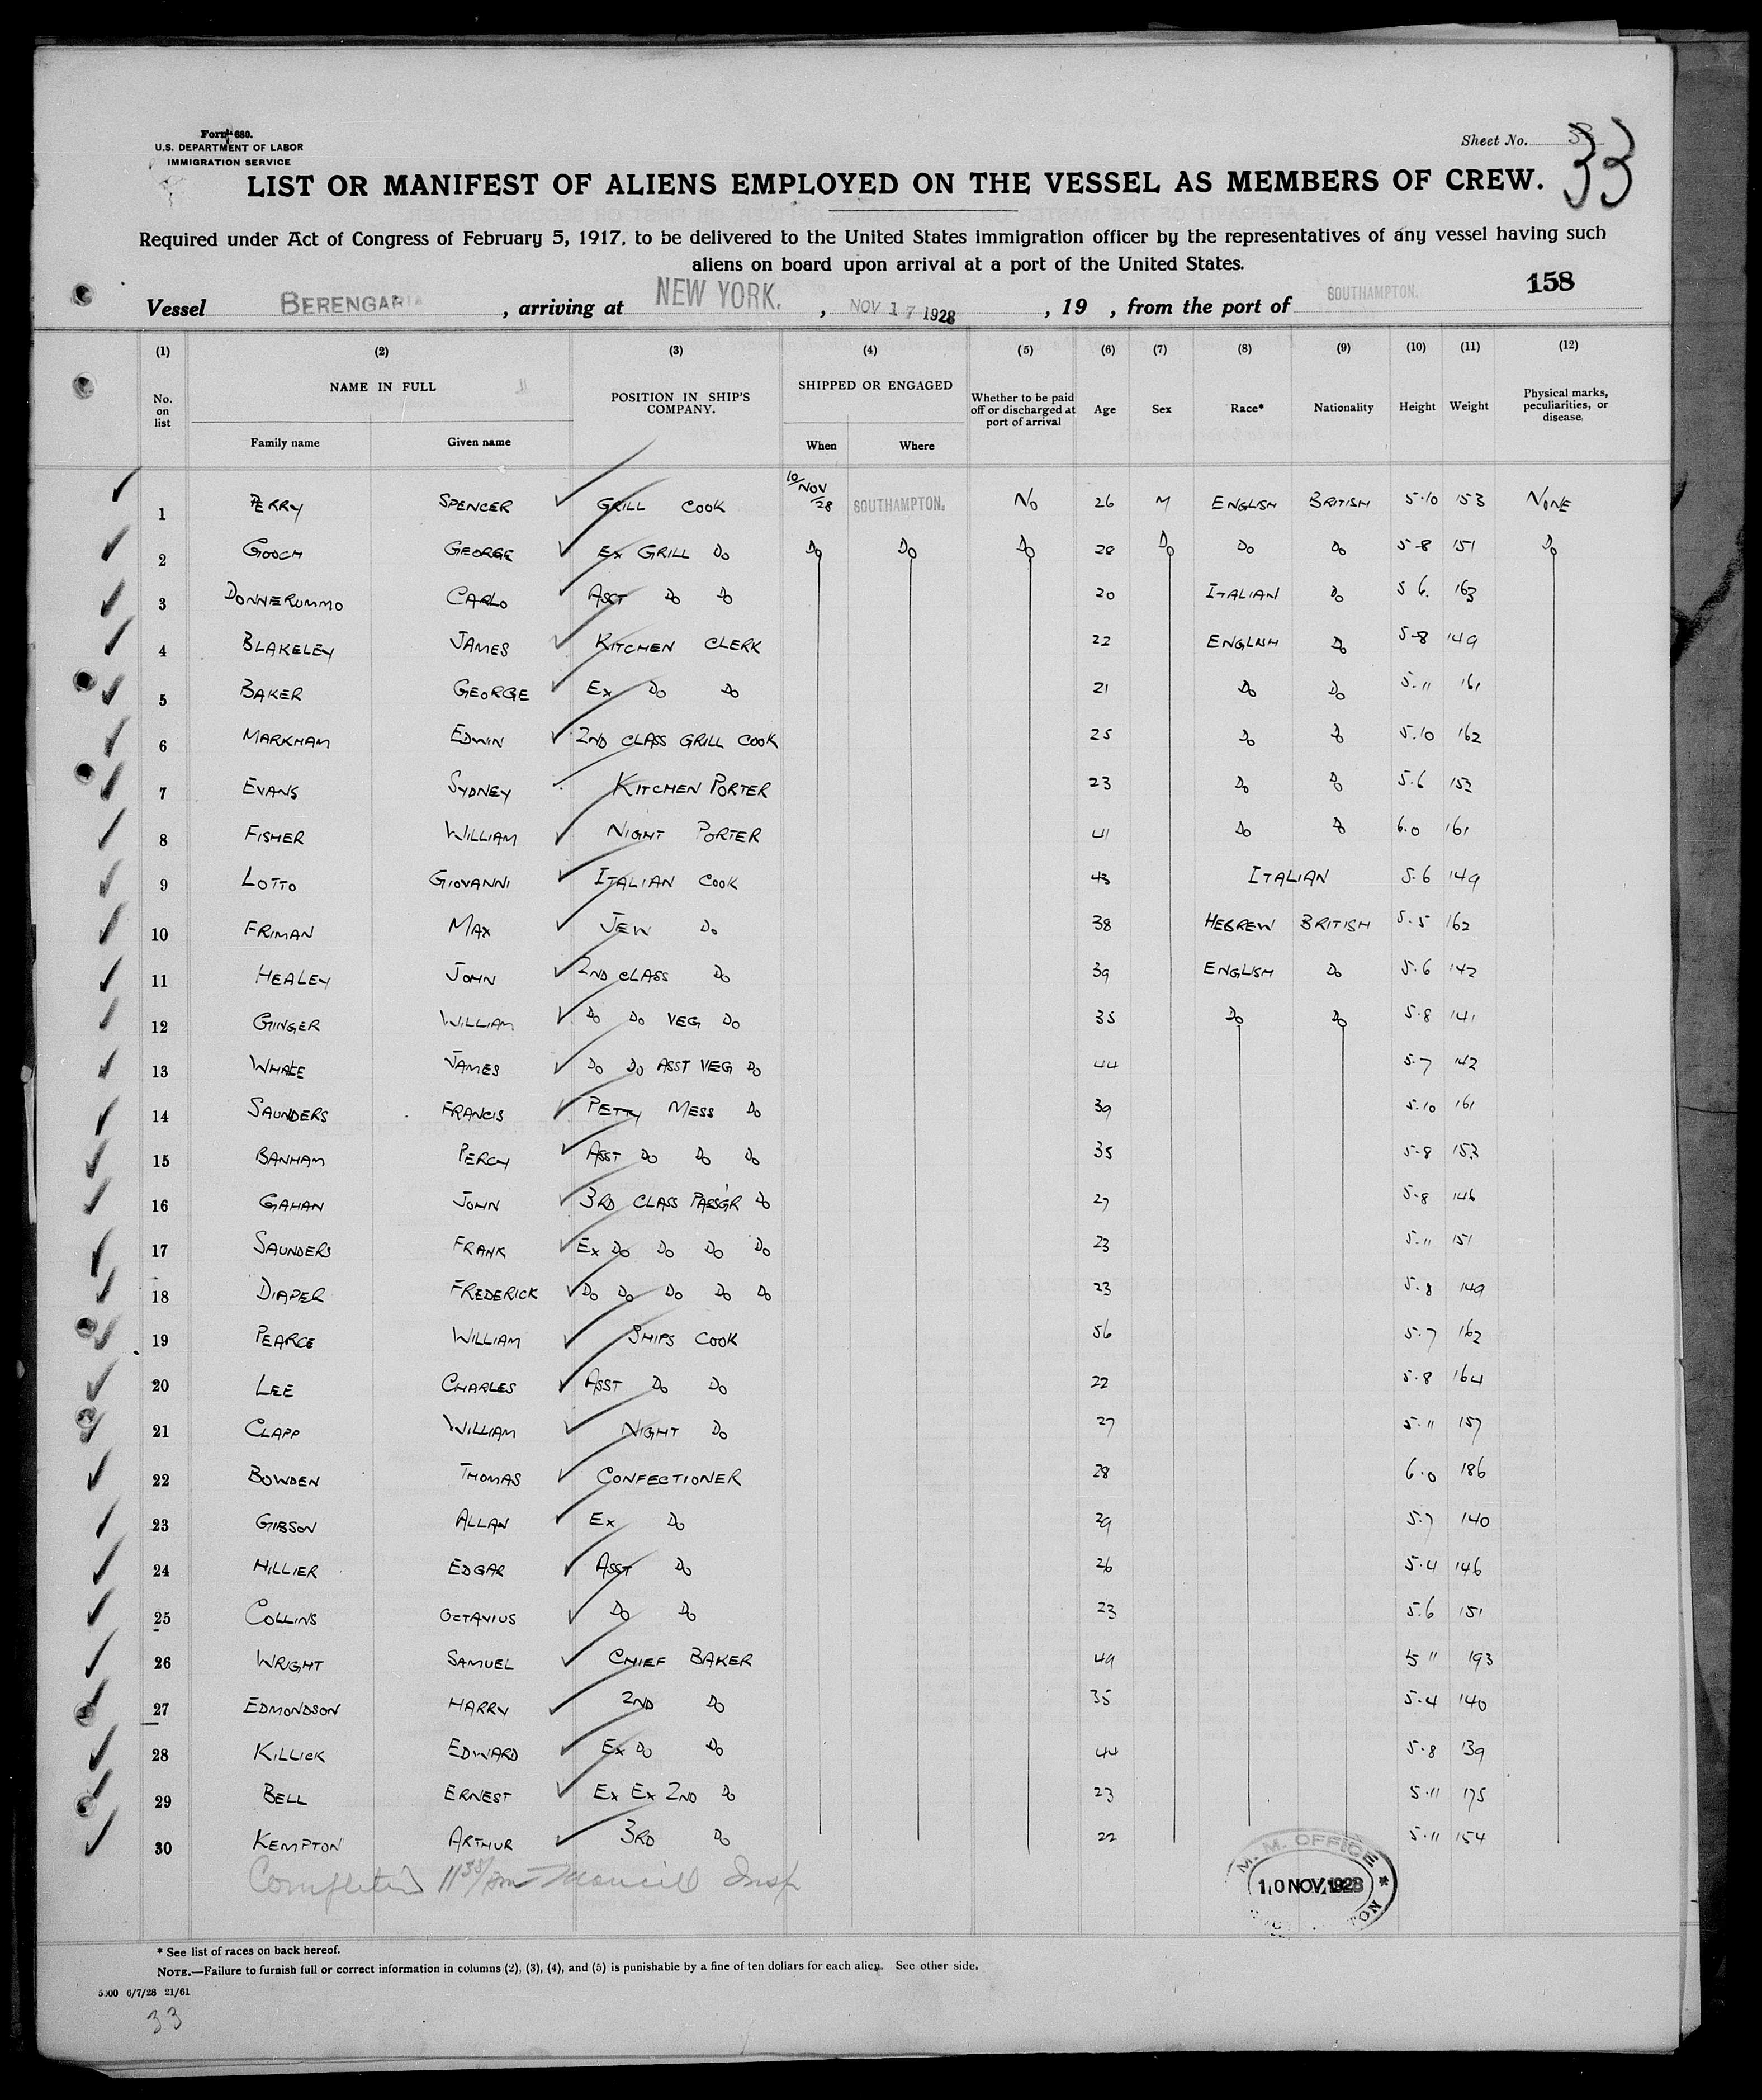 Form 680.
U.S. DEPARTMENT OF LABOR
IMMIGRATION SERVICE
Sheet No. 33
33
LIST OR MANIFEST OF ALIENS EMPLOYED ON THE VESSEL AS MEMBERS OF CREW.
Required under Act of Congress of February 5, 1917, to be delivered to the United States immigration officer by the representatives of any vessel having such
aliens on board upon arrival at a port of the United States.
158
Vessel BERENGARIA , arriving at NEW YORK. , NOV 17 1928 , 19 , from the port of SOUTHAMPTON.
(1) (2) (3) (4) (5) (6) (7) (8) (9) (10) (11) (12)
No. on list NAME IN FULL POSITION IN SHIP'S COMPANY. SHIPPED OR ENGAGED Whether to be paid off or discharged at port of arrival Age Sex Race* Nationality Height Weight Physical marks, peculiarities, or disease.
Family name Given name When Where
1 PERRY SPENCER GRILL COOK 10/NOV/28 SOUTHAMPTON. NO 26 M ENGLISH BRITISH 5.10 153 NONE
2 GOOCH GEORGE EX GRILL DO DO DO DO 28 DO DO DO 5-8 151 DO
3 DONNERUMMO CARLO ASST DO DO 20 ITALIAN DO 5 6. 163
4 BLAKELEY JAMES KITCHEN CLERK 22 ENGLISH DO 5-8 149
5 BAKER GEORGE EX DO DO 21 DO DO 5-11 161
6 MARKHAM EDWIN 2ND CLASS GRILL COOK 25 DO DO 5.10 162
7 EVANS SYDNEY KITCHEN PORTER 23 DO DO 5.6 153
8 FISHER WILLIAM NIGHT PORTER 41 DO DO 6.0 161
9 LOTTO GIOVANNI ITALIAN COOK 43 ITALIAN 5.6 149
10 FRIMAN MAX JEW DO 38 HEBREW BRITISH 5.5 162
11 HEALEY JOHN 2ND CLASS DO 39 ENGLISH DO 5.6 142
12 GINGER WILLIAM DO DO VEG DO 35 DO DO 5.8 141
13 WHALE JAMES DO DO ASST VEG DO 44 5.7 142
14 SAUNDERS FRANCIS PETTY MESS DO 39 5.10 161
15 BANHAM PERCY ASST DO DO DO 35 5-8 153
16 GAHAN JOHN 3RD CLASS PASSGR DO 27 5-8 146
17 SAUNDERS FRANK EX DO DO DO DO 23 5-11 151
18 DIAPER FREDERICK DO DO DO DO DO 23 5.8 149
19 PEARCE WILLIAM SHIPS COOK 56 5.7 162
20 LEE CHARLES ASST DO DO 22 5.8 164
21 CLAPP WILLIAM NIGHT DO 27 5.11 157
22 BOWDEN THOMAS CONFECTIONER 28 6.0 186
23 GIBSON ALLAN EX DO 29 5.7 140
24 HILLIER EDGAR ASST DO 26 5.4 146
25 COLLINS OCTAVIUS DO DO 23 5.6 151
26 WRIGHT SAMUEL CHIEF BAKER 49 5 11 193
27 EDMONDSON HARRY 2ND DO 35 5.4 140
28 KILLICK EDWARD EX DO DO 44 5.8 139
29 BELL ERNEST EX EX 2ND DO 23 5.11 175
30 KEMPTON ARTHUR 3RD DO 22 5.11 154
Completed 11 35/pm Insp
M. M. OFFICE
10 NOV 1928
* See list of races on back hereof.
NOTE.—Failure to furnish full or correct information in columns (2), (3), (4), and (5) is punishable by a fine of ten dollars for each alien. See other side.
5000 6/7/28 21/61
33